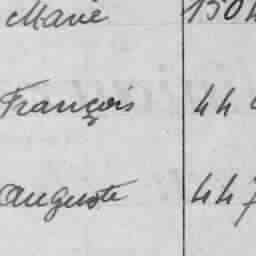 Marie 1504
François 44
Auguste 447